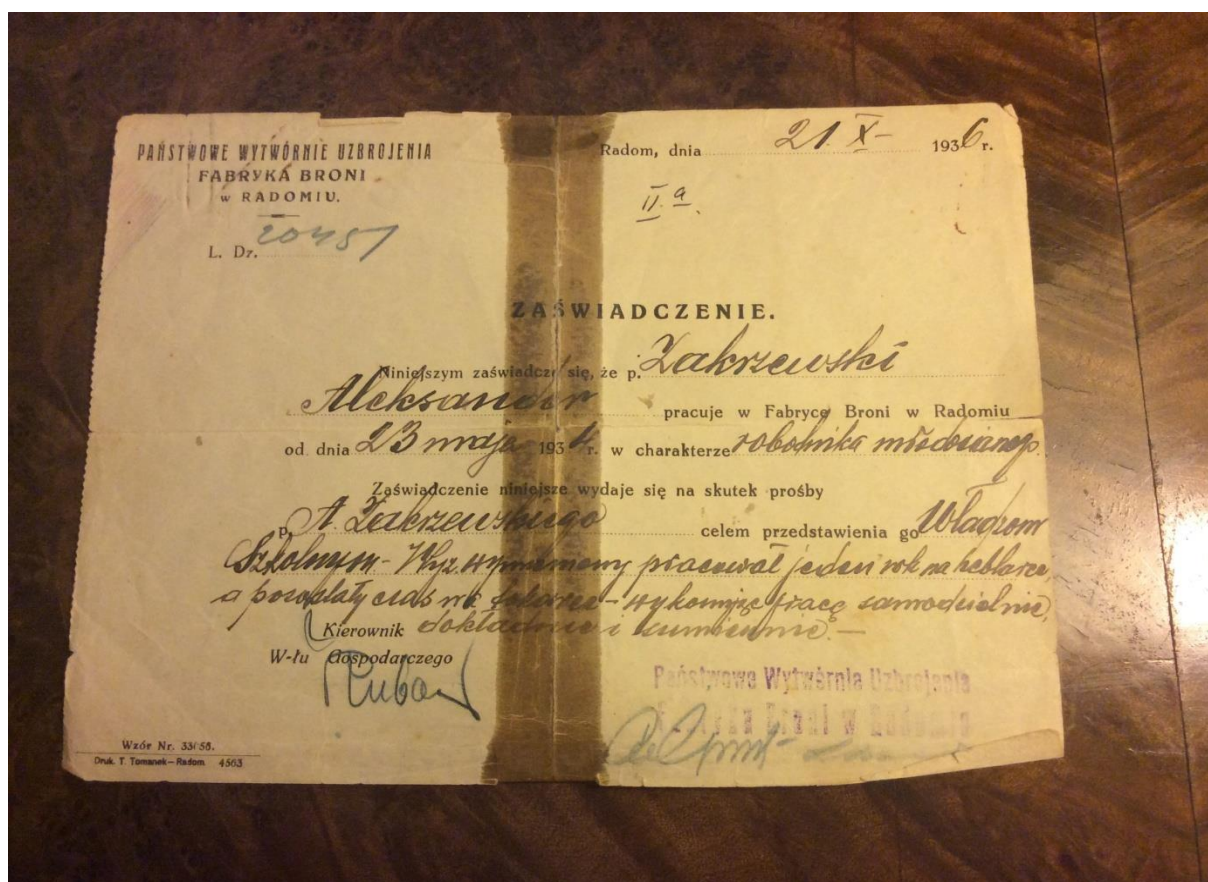 PAŃSTWOWE WYTWÓRNIE UZBROJENIA
FABRYKA BRONI
w RADOMIU.
L. Dz. 20451
Radom, dnia 21. X- 1936 r.
II. a.
ZAŚWIADCZENIE.
Niniejszym zaświadcza się, że p. Zakrzewski
Aleksander pracuje w Fabryce Broni w Radomiu
od dnia 23 maja 1934 r. w charakterze robotnika młodocianego.
Zaświadczenie niniejsze wydaje się na skutek prośby
p. A. Zakrzewskiego celem przedstawienia go Władzom
Szkolnym - Wyż. wymieniony pracował jeden rok na heblarce,
a pozostały czas na tokarce - wykonując pracę samodzielnie,
Kierownik dokładnie i sumiennie. -
W-łu Gospodarczego
Państwowe Wytwórnie Uzbrojenia
Fabryka Broni w Radomiu
Wzór Nr. 33/58.
Druk. T. Tomanek—Radom 4563